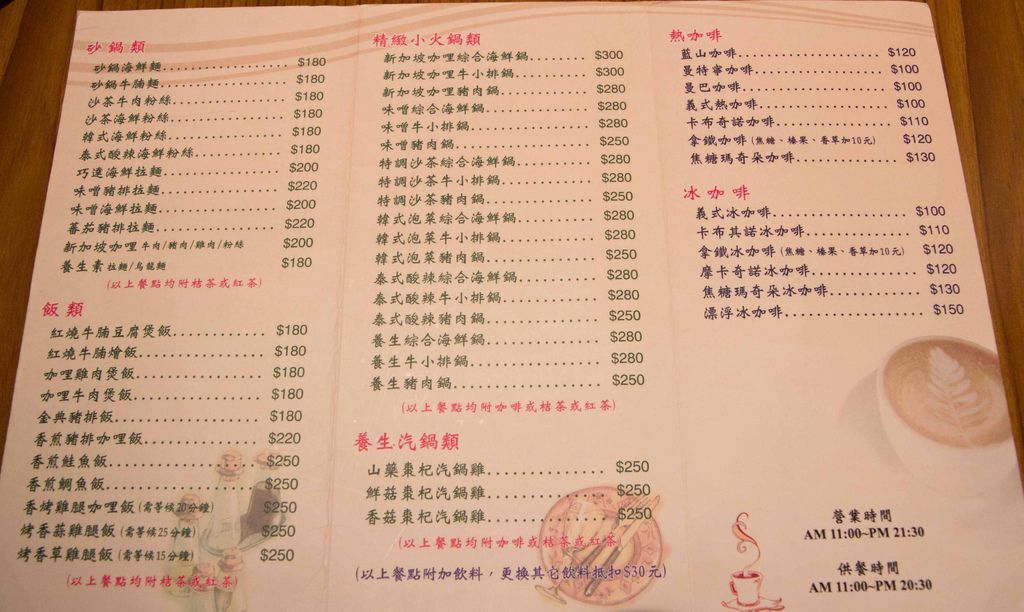 砂鍋類
砂鍋海鮮麵 $180
砂鍋牛腩麵 $180
沙茶牛肉粉絲 $180
沙茶海鮮粉絲 $180
韓式海鮮粉絲 $180
泰式酸辣海鮮粉絲 $180
巧達海鮮拉麵 $200
味噌豬排拉麵 $220
味噌海鮮拉麵 $200
蕃茄豬排拉麵 $220
新加坡咖哩 牛肉/豬肉/雞肉/粉絲 $200
養生素 拉麵/烏龍麵 $180
(以上餐點均附桔茶或紅茶)
飯類
紅燒牛腩豆腐煲飯 $180
紅燒牛腩燴飯 $180
咖哩雞肉煲飯 $180
咖哩牛肉煲飯 $180
金典豬排飯 $180
香煎豬排咖哩飯 $220
香煎鮭魚飯 $250
香煎鯛魚飯 $250
香烤雞腿咖哩飯(需等候20分鐘) $250
烤香蒜雞腿飯(需等候25分鐘) $250
烤香草雞腿飯(需等候15分鐘) $250
(以上餐點均附桔茶或紅茶)
精緻小火鍋類
新加坡咖哩綜合海鮮鍋 $300
新加坡咖哩牛小排鍋 $300
新加坡咖哩豬肉鍋 $280
味噌綜合海鮮鍋 $280
味噌牛小排鍋 $280
味噌豬肉鍋 $250
特調沙茶綜合海鮮鍋 $280
特調沙茶牛小排鍋 $280
特調沙茶豬肉鍋 $250
韓式泡菜綜合海鮮鍋 $280
韓式泡菜牛小排鍋 $280
韓式泡菜豬肉鍋 $250
泰式酸辣綜合海鮮鍋 $280
泰式酸辣牛小排鍋 $280
泰式酸辣豬肉鍋 $250
養生綜合海鮮鍋 $280
養生牛小排鍋 $280
養生豬肉鍋 $250
(以上餐點均附咖啡或桔茶或紅茶)
養生汽鍋類
山藥棗杞汽鍋雞 $250
鮮菇棗杞汽鍋雞 $250
香菇棗杞汽鍋雞 $250
(以上餐點均附咖啡或桔茶或紅茶)
(以上餐點附加飲料，更換其它飲料抵扣$30元)
熱咖啡
藍山咖啡 $120
曼特寧咖啡 $100
曼巴咖啡 $100
義式熱咖啡 $100
卡布奇諾咖啡 $110
拿鐵咖啡(焦糖、榛果、香草加10元) $120
焦糖瑪奇朵咖啡 $130
冰咖啡
義式冰咖啡 $100
卡布其諾冰咖啡 $110
拿鐵冰咖啡(焦糖、榛果、香草加10元) $120
摩卡奇諾冰咖啡 $120
焦糖瑪奇朵冰咖啡 $130
漂浮冰咖啡 $150
營業時間
AM 11:00~PM 21:30
供餐時間
AM 11:00~PM 20:30